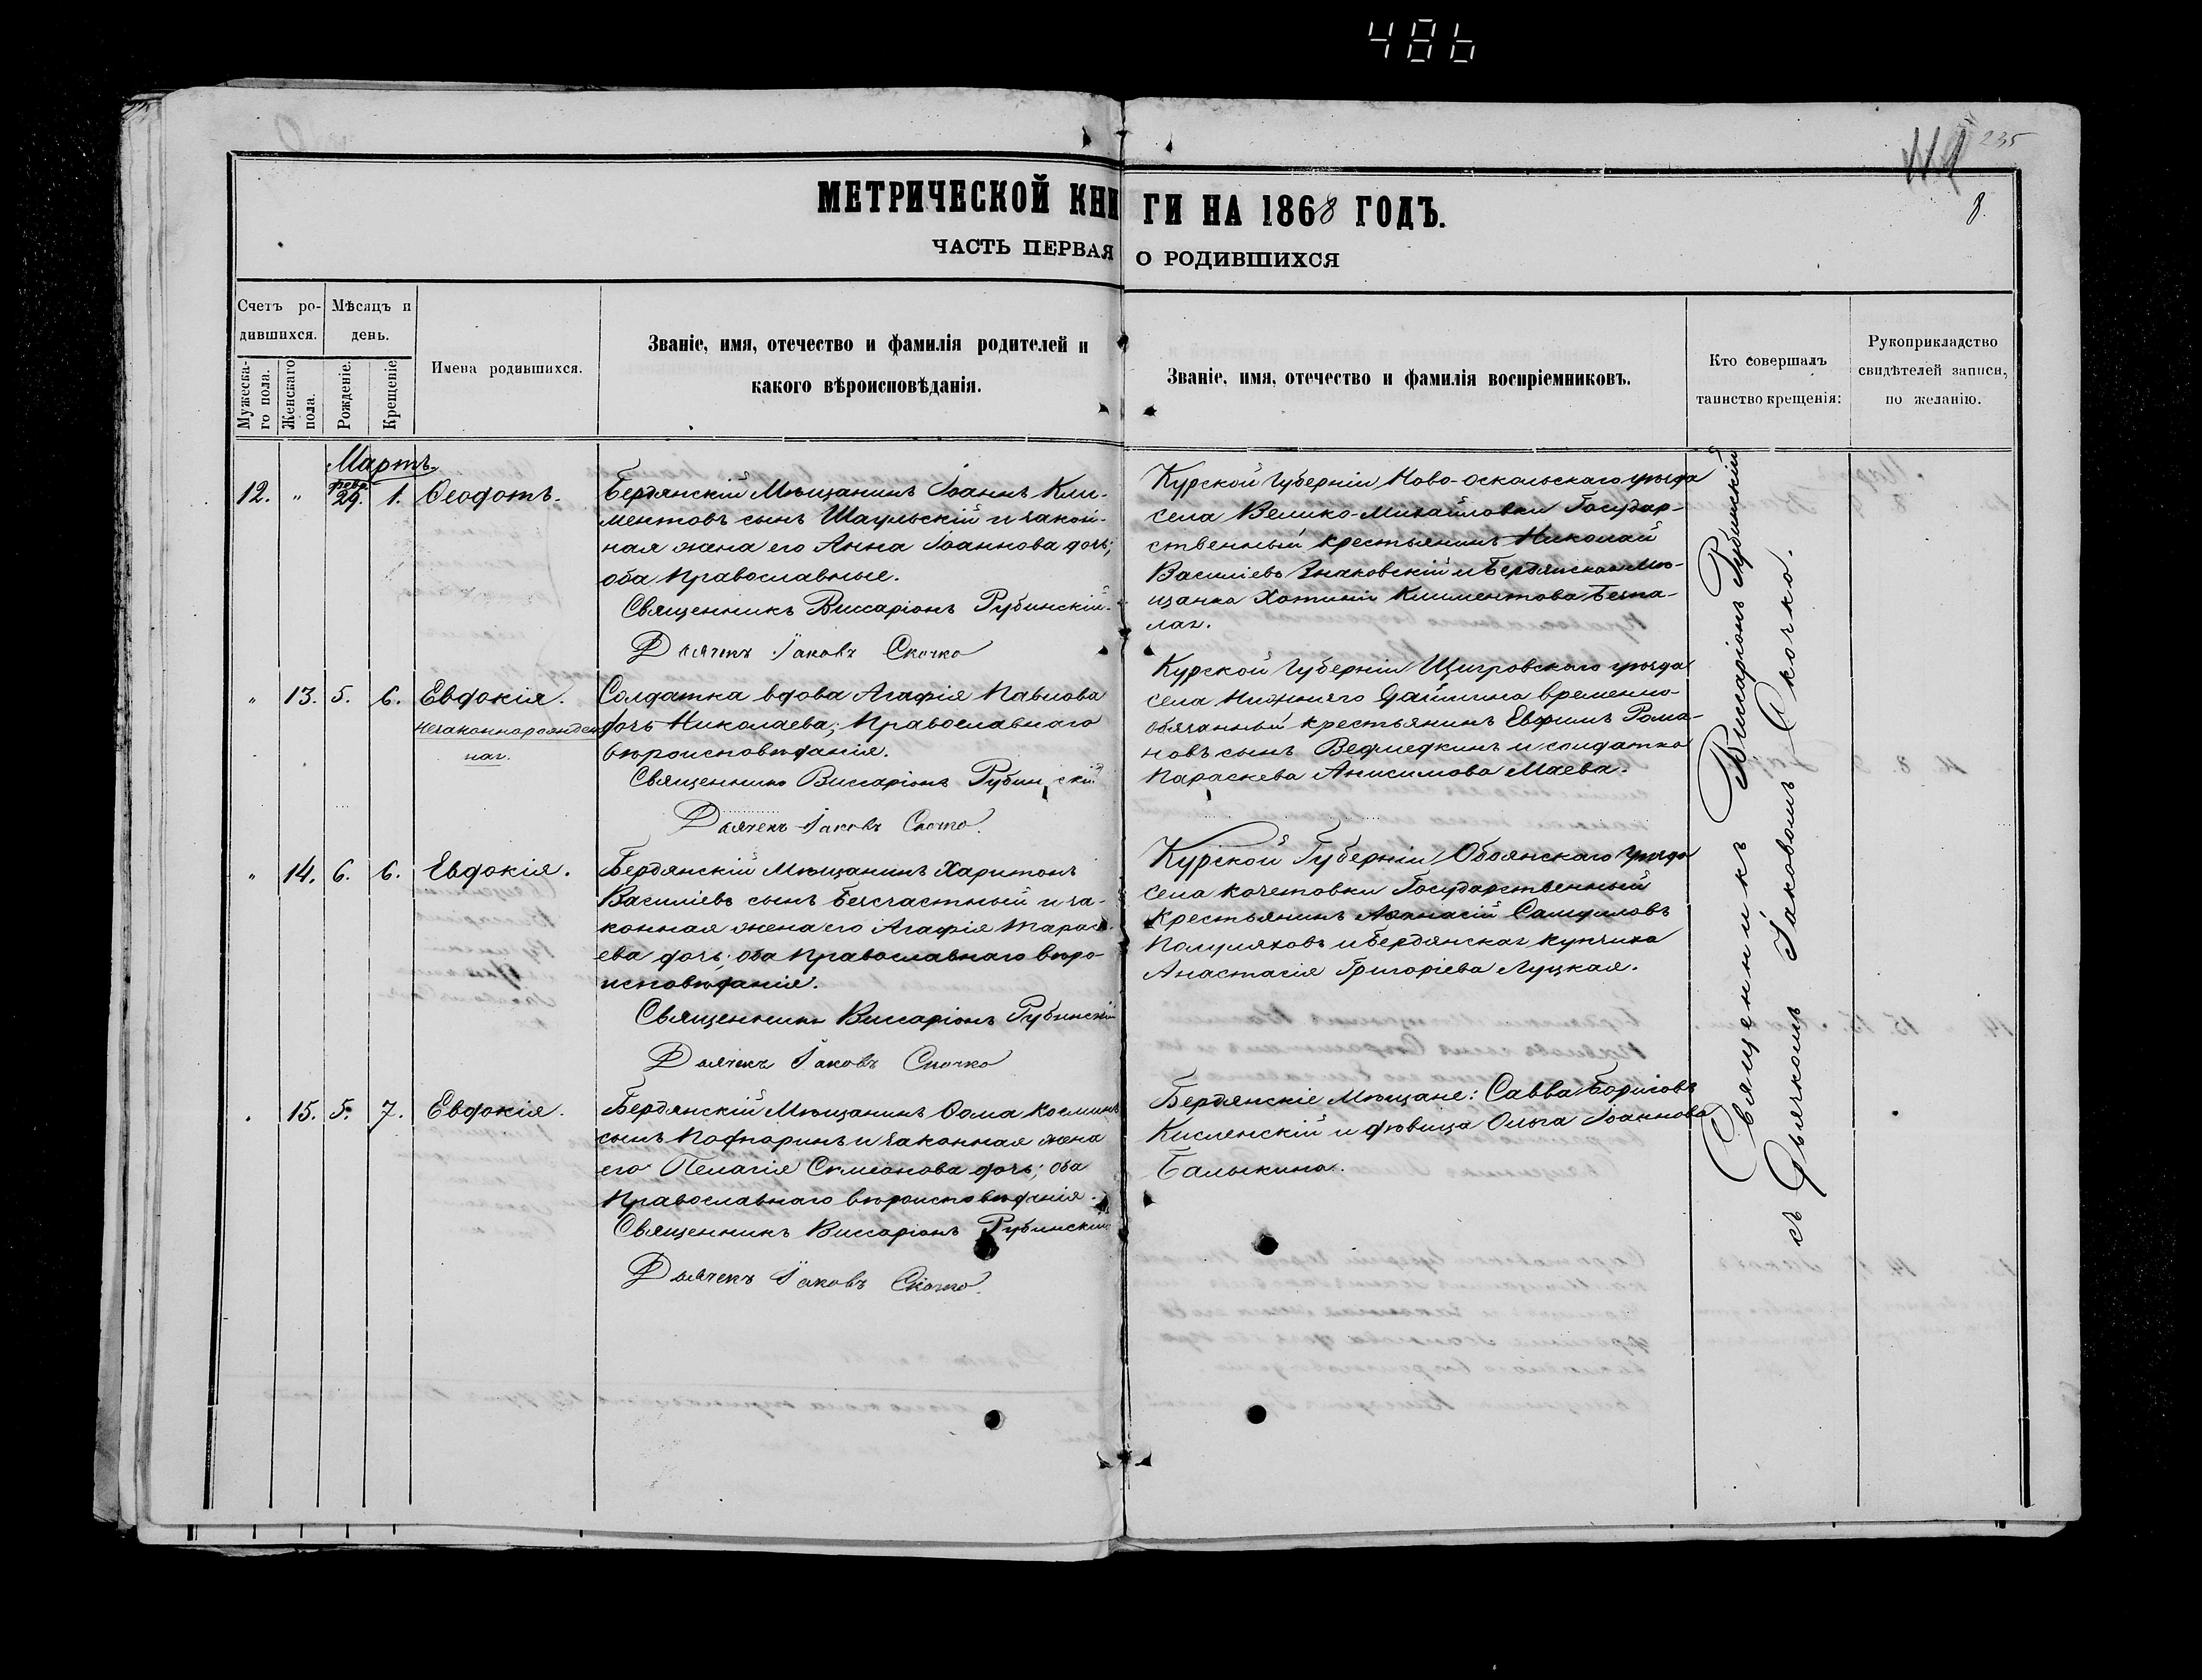 486
235
8.
МЕТРИЧЕСКОЙ КНИГИ НА 1868 ГОДЪ.
ЧАСТЬ ПЕРВАЯ О РОДИВШИХСЯ
Счетъ ро-
дившихся.
Мужеска-
го пола.
Женскаго
пола.
Мѣсяцъ и
день.
Рожденіе.
Крещеніе.
Имена родившихся.
Званіе, имя, отечество и фамилія родителей и
какого вѣроисповѣданія.
Званіе, имя, отечество и фамилія воспріемниковъ.
Кто совершалъ
таинство крещенія:
Рукоприкладство
свидѣтелей записи,
по желанію.
Мартъ.
12. " февр. 29. 1. Ѳеодотъ.
Бердянскій Мѣщанинъ Іоаннъ Кли-
ментовъ сынъ Шаульскій и закон-
ная жена его Анна Іоаннова дочь;
оба Православные.
Священникъ Виссаріонъ Рубинскій.
Дьячекъ Іаковъ Скочко
Курской Губерніи Ново-оскольскаго уѣзда
села Велико-Михайловки Государ-
ственный крестьянинъ Николай
Василіевъ и Бердянская Мѣ-
щанка Климентова
" 13. 5. 6. Евдокія.
Незаконнорожден-
ная.
Солдатка вдова Агафія Павлова
дочь Николаева; Православнаго
вѣроисповѣданія.
Священникъ Виссаріонъ Рубинскій
Дьячекъ Іаковъ Скочко.
Курской Губерніи Щигровскаго уѣзда
села Нижняго временно-
обязанный крестьянинъ Евфимъ Рома-
новъ сынъ Ведмедкинъ и солдатка
Параскева Анисимова Маева.
" 14. 6. 6. Евдокія.
Бердянскій Мѣщанинъ Харитонъ
Василіевъ сынъ Безсчастный и за-
конная жена его Агафія Тарасі-
ева дочь; оба Православнаго вѣро-
исповѣданія.
Священникъ Виссаріонъ Рубинскій
Дьячекъ Іаковъ Скочко
Курской Губерніи Обоянскаго уѣзда
села Кочетовки Государственный
Крестьянинъ Аѳанасій Самуиловъ
Полуляховъ и Бердянская Купчиха
Анастасія Григоріева Луцкая.
15. 5. 7. Евдокія.
Бердянскій Мѣщанинъ Ѳома Косминъ
сынъ и законная жена
его Пелагія Симеонова дочь; оба
Православнаго вѣроисповѣданія.
Священникъ Виссаріонъ Рубинскій
Дьячекъ Іаковъ Скочко.
Бердянскіе Мѣщане: Савва Борисовъ
Кисленскій и дѣвица Ольга Іоаннова
Балыкина.
Священникъ Виссаріонъ Рубинскій
съ Дьячкомъ Іаковомъ Скочко.